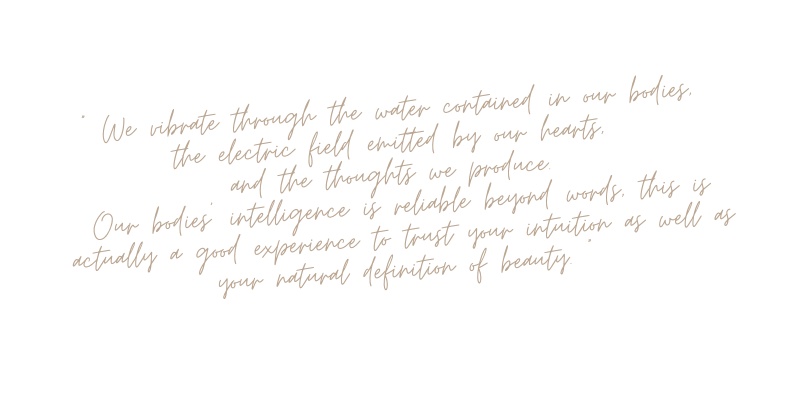 " We vibrate through the water contained in our bodies,
the electric field emitted by our hearts,
and the thoughts we produce.
Our bodies' intelligence is reliable beyond words, this is
actually a good experience to trust your intuition as well as
your natural definition of beauty. "